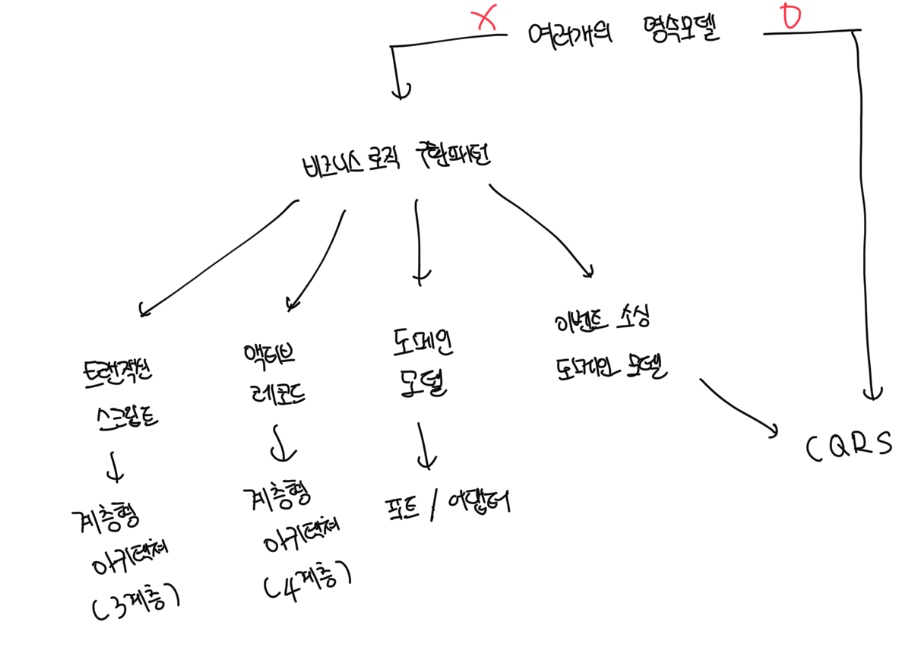 X 여러개의 영속모델 O
비즈니스 로직 구현패턴
트랜잭션
스크립트
계층형
아키텍쳐
(3계층)
액티브
레코드
계층형
아키텍쳐
(4계층)
도메인
모델
포트 / 어댑터
이벤트 소싱
도메인 모델
CQRS